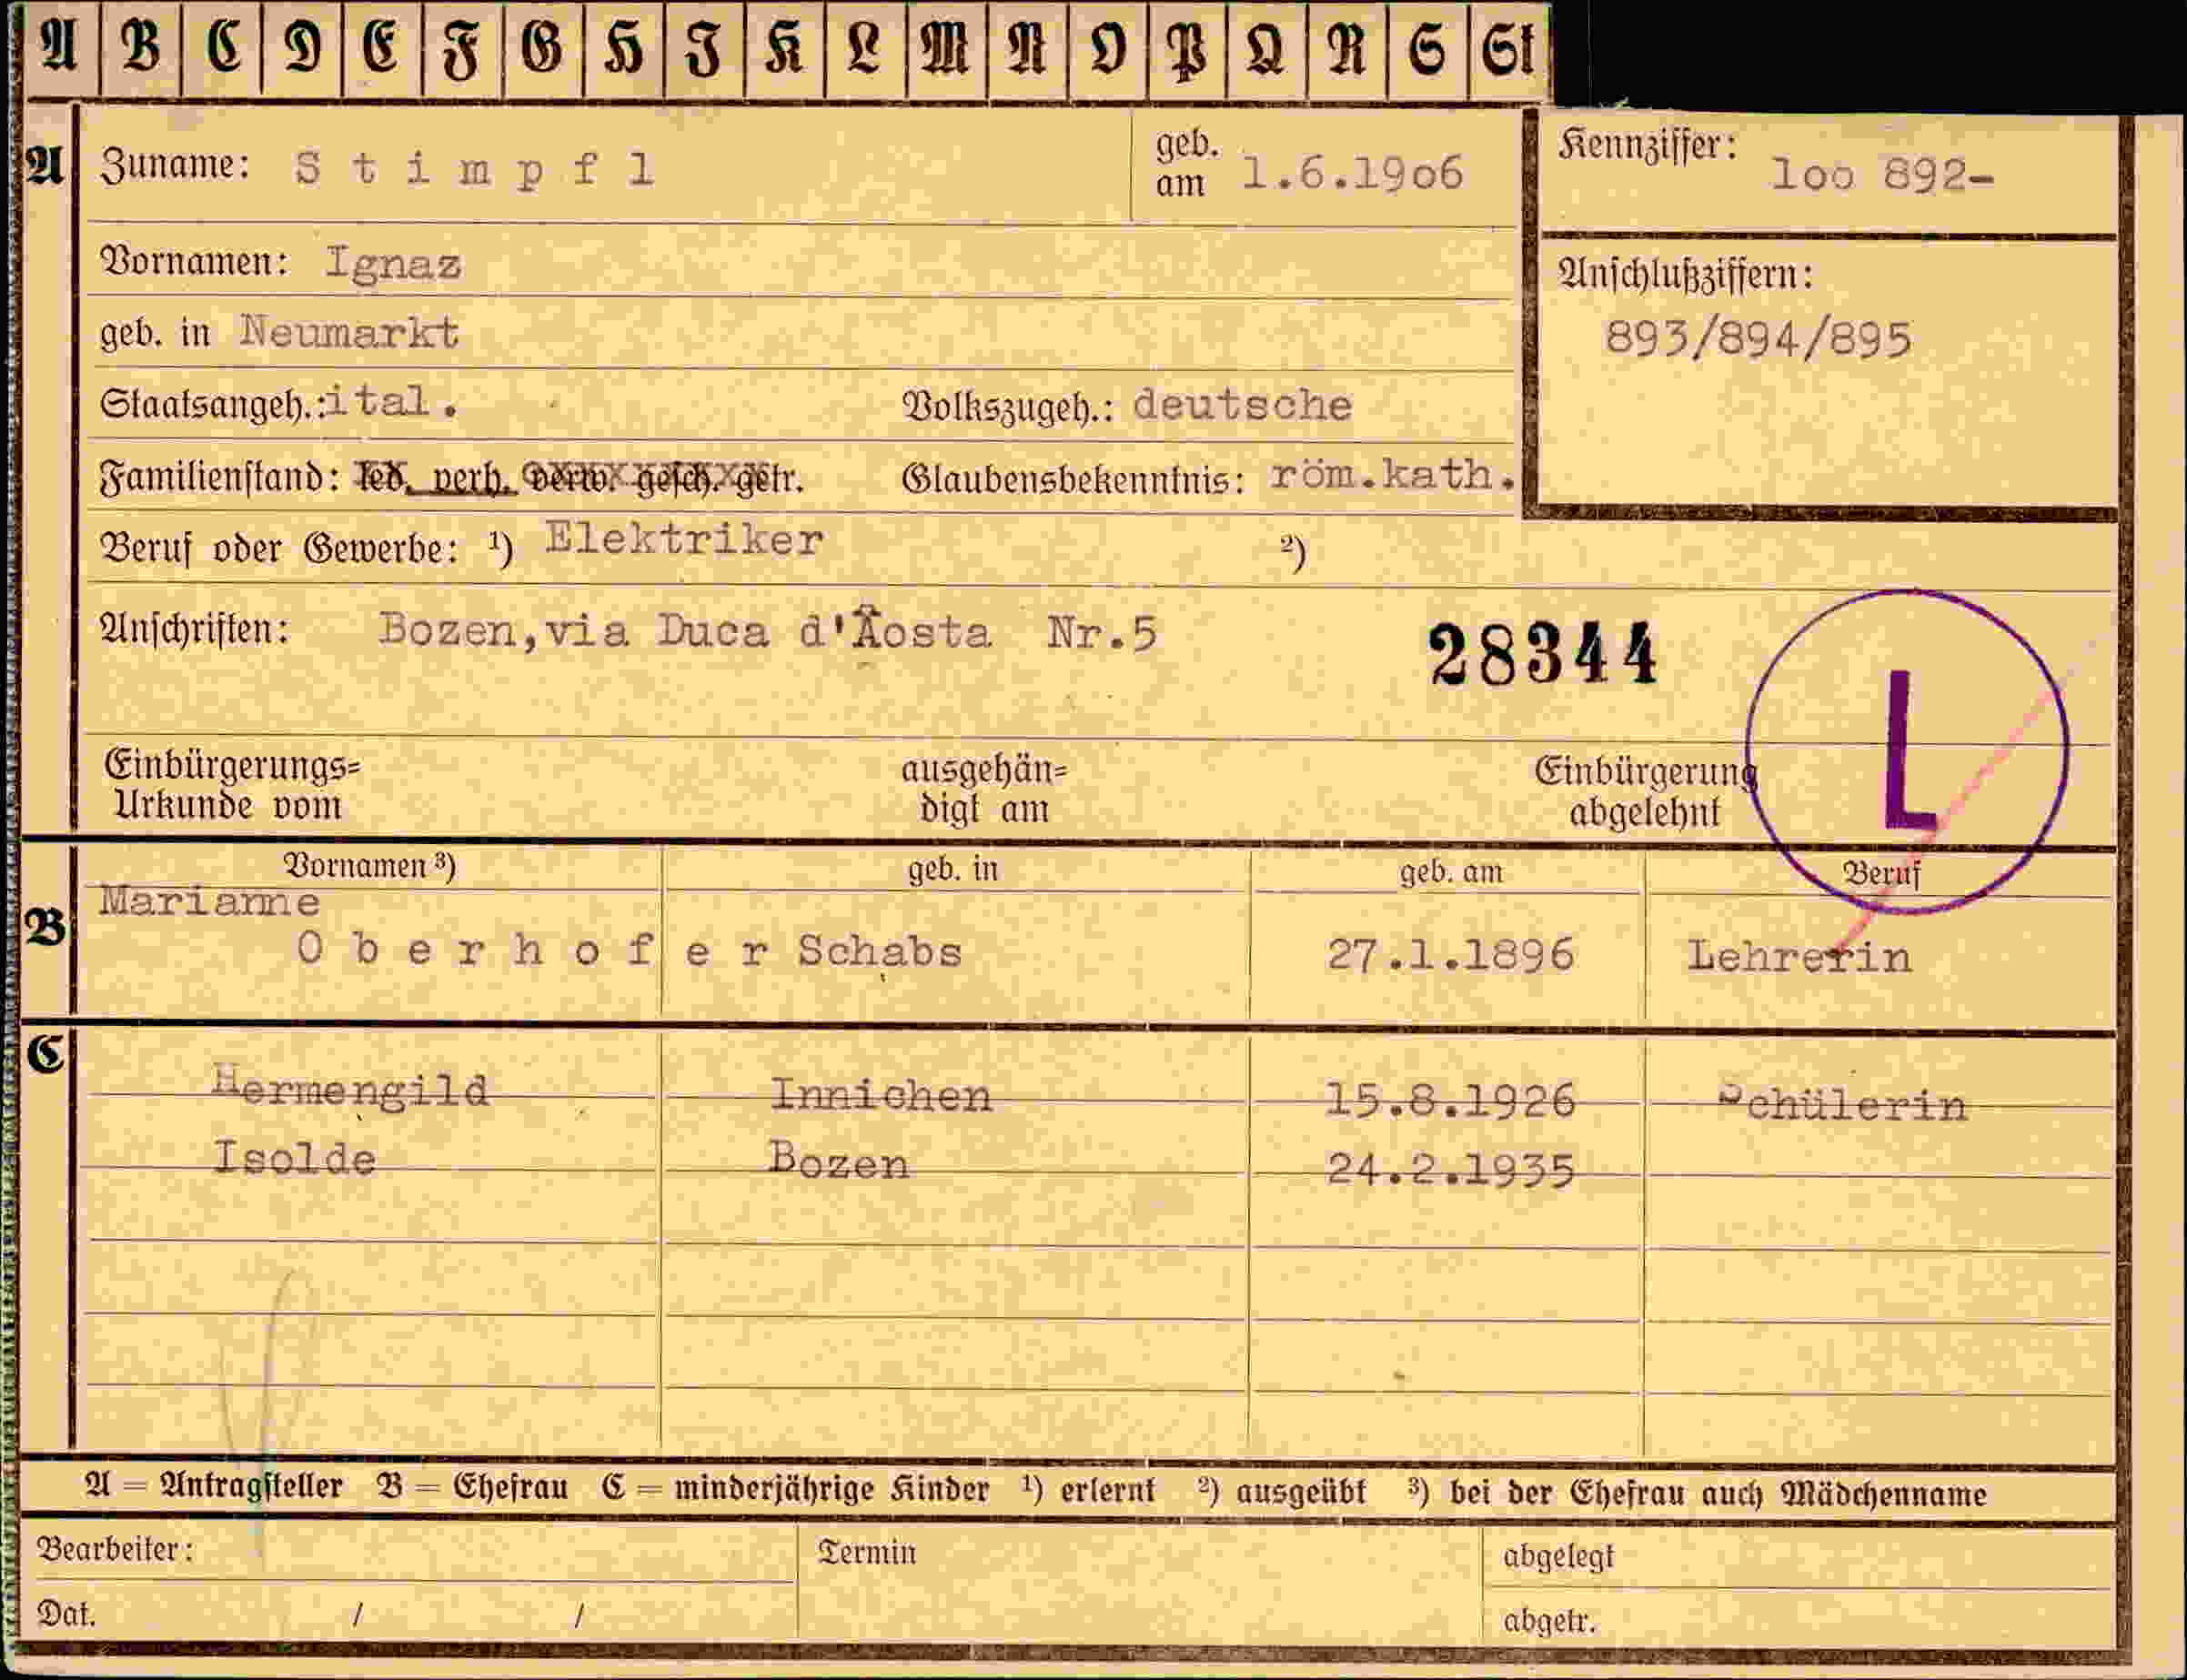 A B C D E F G H J K L M N O P Q R S St
A Zuname: Stimpfl geb. am 1.6.19o6 Kennziffer: loo 892-
Vornamen: Ignaz
Anschlußziffern:
geb. in Neumarkt 893/894/895
Staatsangeh.: ital. Volkszugeh.: deutsche
Familienstand: led. verh. verw. gesch. getr. Glaubensbekenntnis: röm.kath.
Beruf oder Gewerbe: ¹) Elektriker ²)
Anschriften: Bozen,via Duca d'Aosta Nr.5 28344
L
Einbürgerungs= ausgehän= Einbürgerung
Urkunde vom digt am abgelehnt
Vornamen ³) geb. in geb. am Beruf
B Marianne
Oberhofer Schabs 27.1.1896 Lehrerin
C
Hermengild Innichen 15.8.1926 Schülerin
Isolde Bozen 24.2.1935
A = Antragsteller B = Ehefrau C = minderjährige Kinder ¹) erlernt ²) ausgeübt ³) bei der Ehefrau auch Mädchenname
Bearbeiter: Termin abgelegt
Dat. / / abgetr.